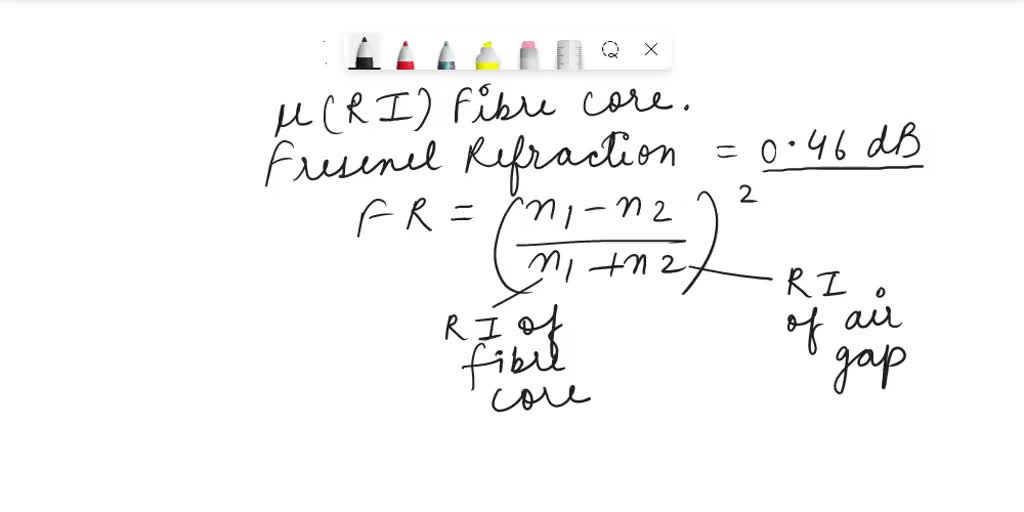 μ(RI) Fibre core.
Fresenel Refraction = 0.46 dB
FR = (n1 - n2 / n1 + n2)²
RI of fibre core
RI of air gap